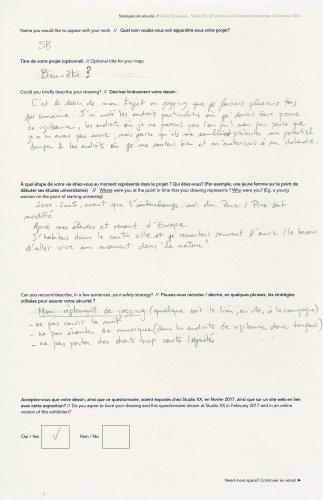 Stratégies de sécurité // Safety Strategies - Studio XX, 22 October and Concordia University, 23 October 2016
Name you would like to appear with your work // Quel nom voulez-vous voir apparaître sous votre projet?
SB
Titre de votre projet (optionnel) // Optional title for your map:
Bien-être ?
Could you briefly describe your drawing? // Décrivez brièvement votre dessin :
C'est le dessin de mon trajet en jogging que je faisais plusieurs fois
par semaine. J'ai noté les endroits particuliers où je devais faire preuve
de vigilance, les endroits où je ne passais pas (ou peu) non pas parce que
je n'en avais pas envie, mais parce qu'ils me semblaient présenter un potentiel
danger & les endroits où je me sentais bien et m'autorisais à me détendre.
À quel étape de votre vie étiez-vous au moment représenté dans le projet ? Qui étiez-vous? (Par exemple, une jeune femme sur le point de
débuter ses études universitaires) // Where were you at the point in time that your drawing represents? Who were you? (Eg, a young
woman on the point of starting university)
2000-2005, avant que l'interchange du Parc / Pins soit
modifié
Après mes études et venant d'Europe
J'habitais dans le centre ville et je ressentais souvent l'envie / le besoin
d'aller vivre un moment dans la nature !
Can you recount/describe, in a few sentences, your safety strategy? // Pouvez-vous raconter / décrire, en quelques phrases, les stratégies
utilisées pour assurer votre sécurité ?
Mon règlement de jogging (quelque soit le lieu, en ville, à la campagne)
- ne pas courir la nuit
- ne pas écouter de musique (dans les endroits de vigilance donc toujours)
- ne pas porter des shorts trop courts /
Acceptez-vous que votre dessin, ainsi que ce questionnaire, soient exposés chez Studio XX, en février 2017, ainsi que sur un site-web en lien
avec cette exposition? // Do you agree to have your drawing and this questionnaire shown at Studio XX in February 2017 and in an online
version of this exhibition?
Oui / Yes ✓ Non / No
Need more space? Continuer au verso! ►